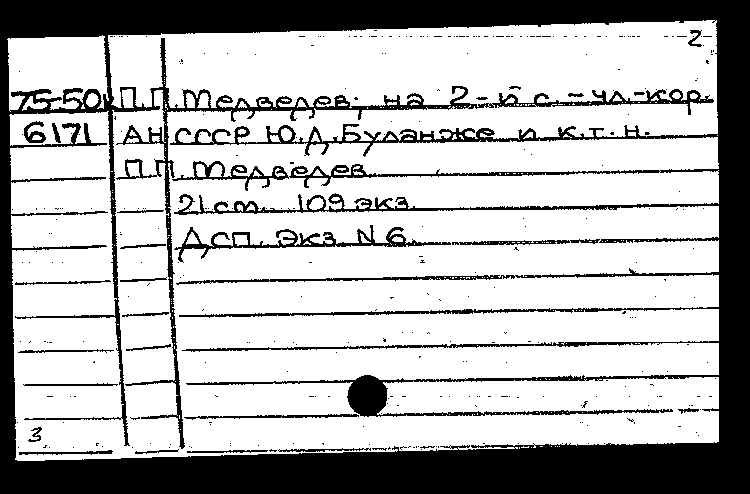 2
75-50к П.П.Медведев; на 2-й с. - чл.-кор.
6171 АН СССР Ю.Д.Буланже и к.т.н.
П.П.Медведев.
21 cm. 109 экз.
ДСП. Экз. N 6.
3